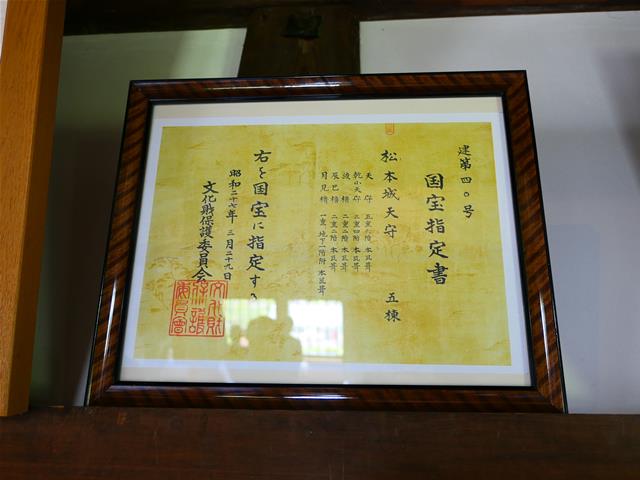 建第四〇号
国宝指定書
松本城天守 五棟
天守 五重六階 本瓦葺
乾小天守 三重四階 本瓦葺
渡櫓 二重二階 本瓦葺
辰巳櫓 二重二階 本瓦葺
月見櫓 一重 地下一階附 本瓦葺
右を国宝に指定する
昭和二十七年 三月二十九日
文化財保護委員会
文化財
保護
委員會